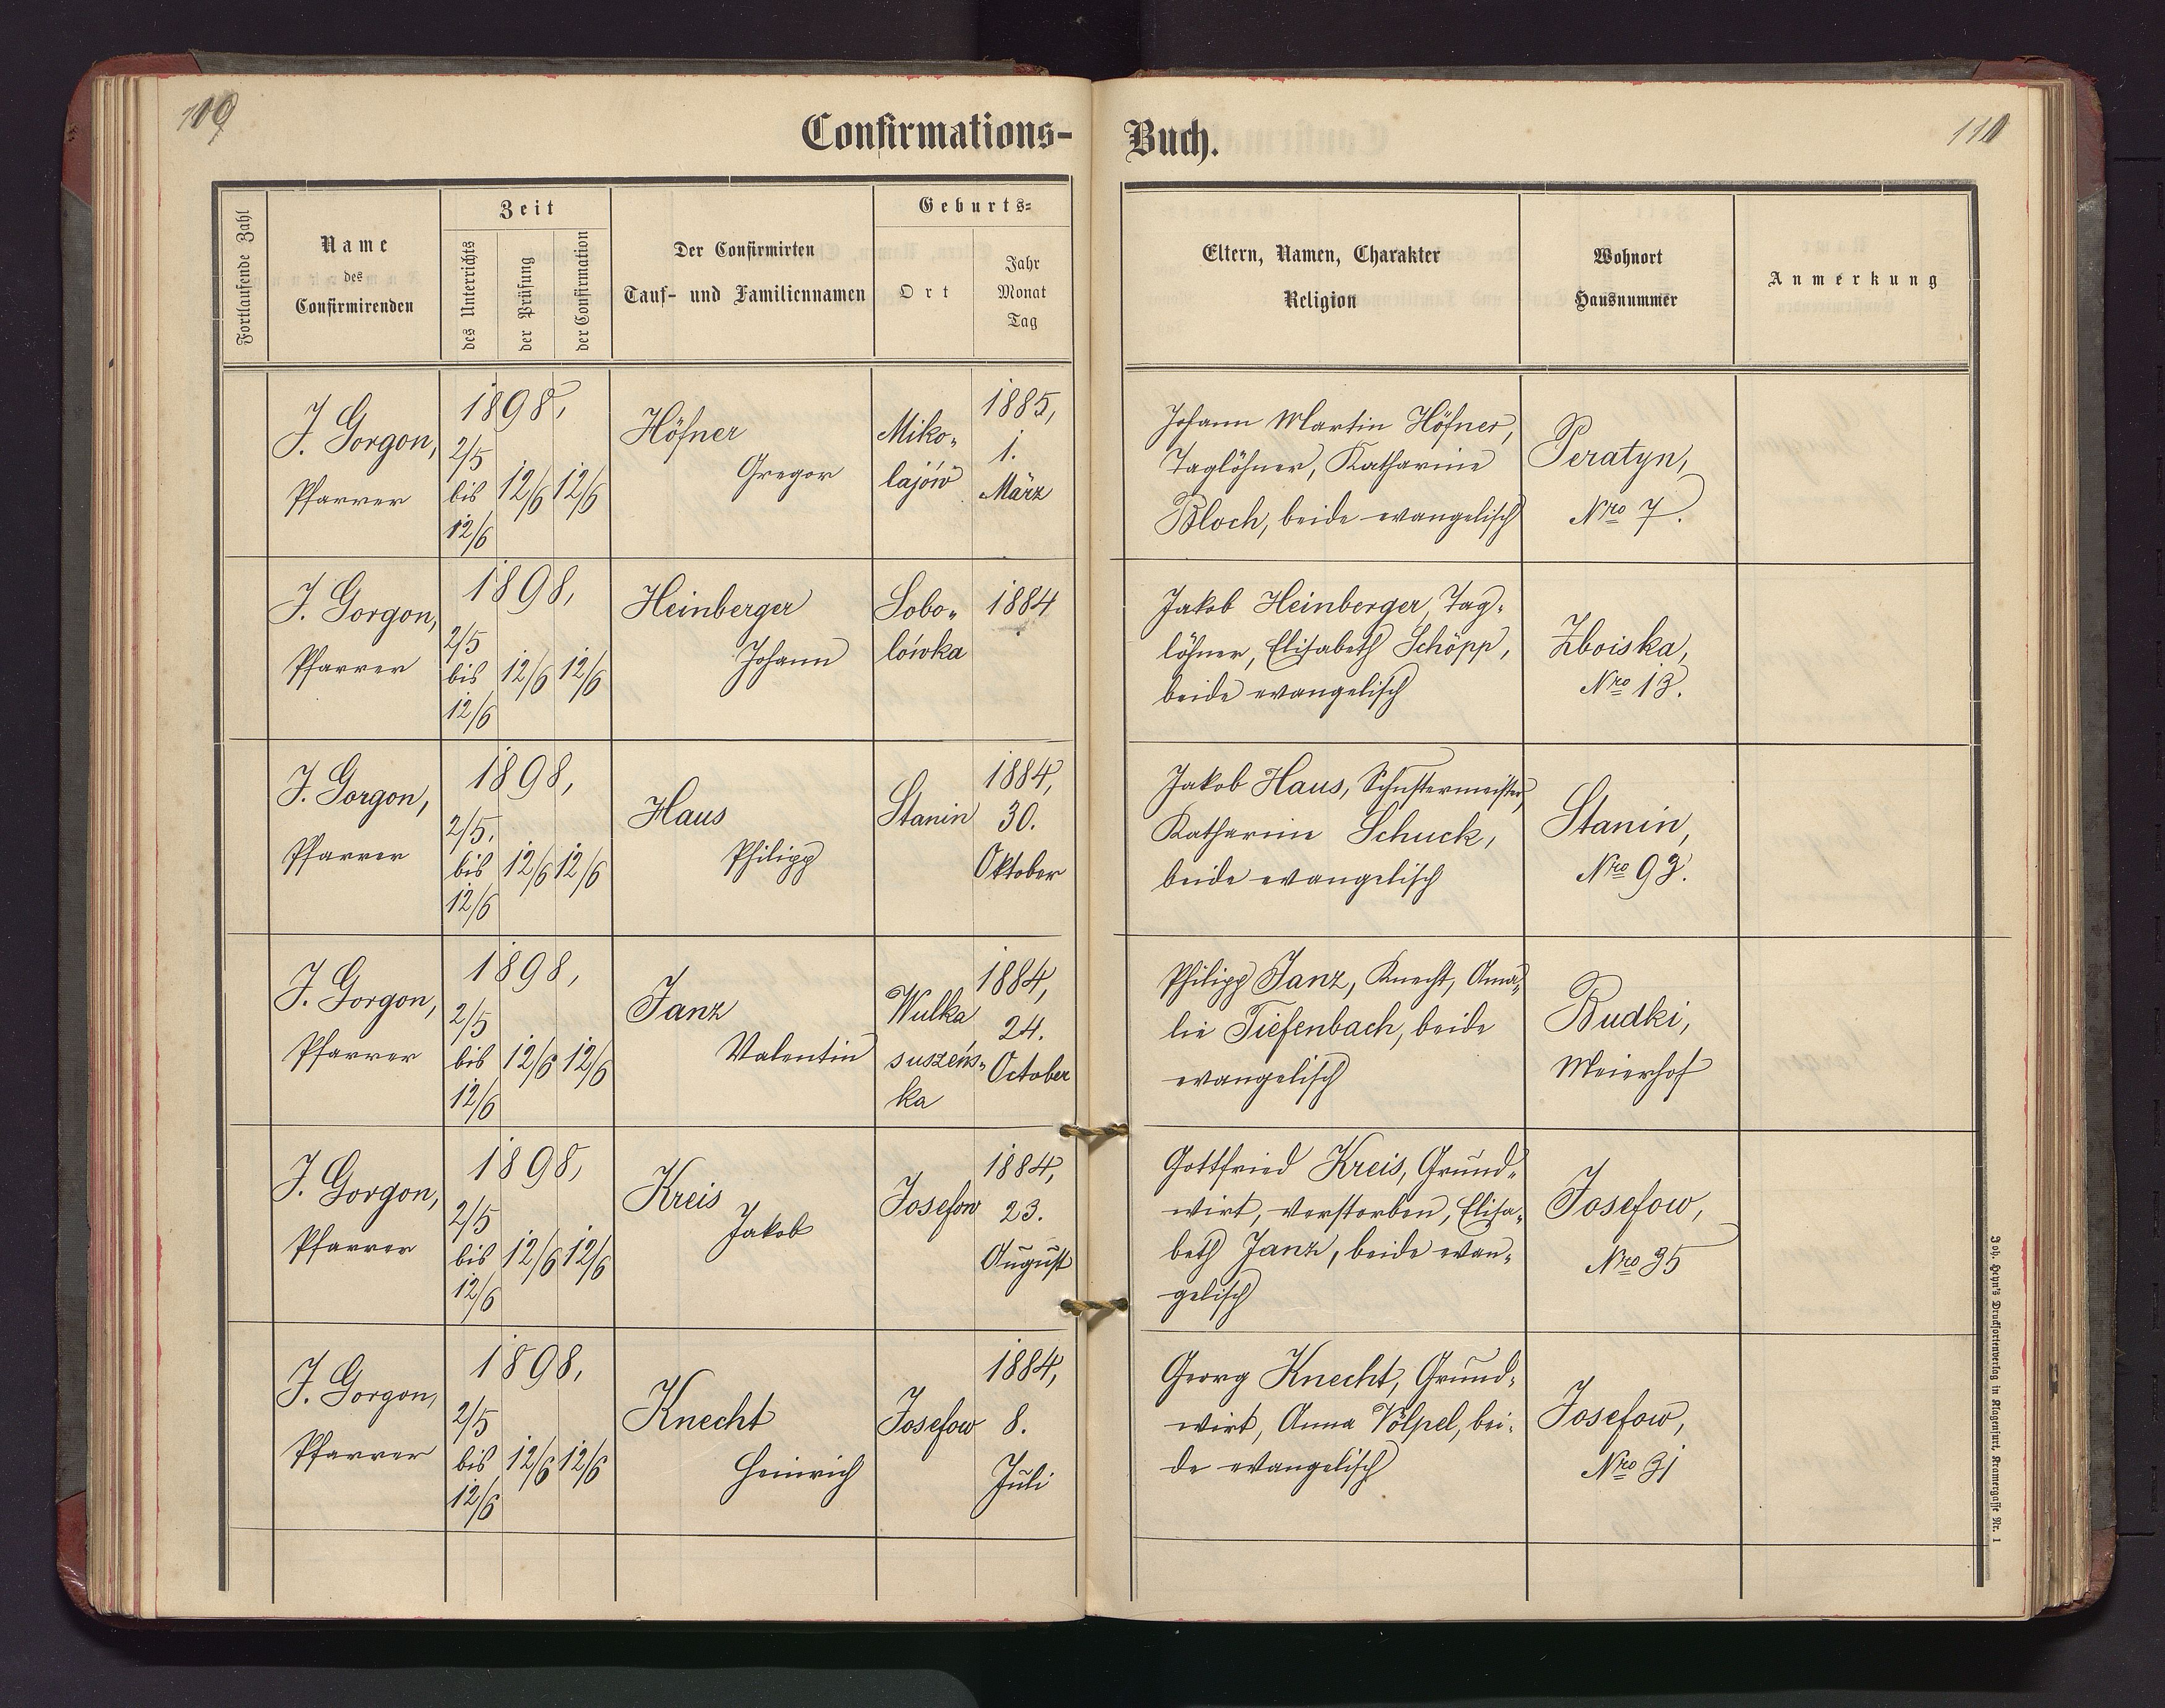 109
110
Confirmations-Buch.
Fortlaufende Zahl
Name
des
Confirmirenden
Zeit
des Unterrichts
der Prüfung
der Confirmation
Der Confirmirten
Tauf- und Familiennamen
Geburts-
Ort
Jahr
Monat
Tag
Eltern, Namen, Charakter
Religion
Wohnort
Hausnummer
Anmerkung
J. Gorgon,
Pfarrer
1898,
2/5
bis
12/6
12/6
12/6
Höfner
Gregor
Miko-
lajów
1885,
1.
März
Johann Martin Höfner,
Taglöhner, Katharine
Bloch, beide evangelisch
Peratyn,
Nro 7.
J. Gorgon,
Pfarrer
1898,
2/5
bis
12/6
12/6
12/6
Heinberger
Johann
Sobo-
lówka
1884
Jakob Heinberger, Tag-
löhner, Elisabeth Schöpp,
beide evangelisch
Zboiska,
Nro 13.
J. Gorgon,
Pfarrer
1898,
2/5.
bis
12/6
12/6
12/6
Haus
Philipp
Stanin
1884,
30.
Oktober
Jakob Haus, Schustermeister,
Katharine Schuck,
beide evangelisch
Stanin,
Nro 93.
J. Gorgon,
Pfarrer
1898,
2/5
bis
12/6
12/6
12/6
Janz
Valentin
Wulka
suszeńs-
ka
1884,
24.
October
Philipp Janz, Knecht, Ama-
lie Tiefenbach, beide
evangelisch
Budki,
Meierhof
J. Gorgon,
Pfarrer
1898,
2/5
bis
12/6
12/6
12/6
Kreis
Jakob
Josefow
1884,
23.
August
Gottfried Kreis, Grund-
wirt, verstorben, Elisa-
beth Janz, beide evan-
gelisch
Josefow,
Nro 35
J. Gorgon,
Pfarrer
1898,
2/5
bis
12/6
12/6
12/6
Knecht
Heinrich
Josefow
1884,
8.
Juli
Georg Knecht, Grund-
wirt, Anna Völpel, bei-
de evangelisch
Josefow,
Nro 31
Joh. Heyn's Drucksortenverlag in Klagenfurt, Kramergasse Nr. 1